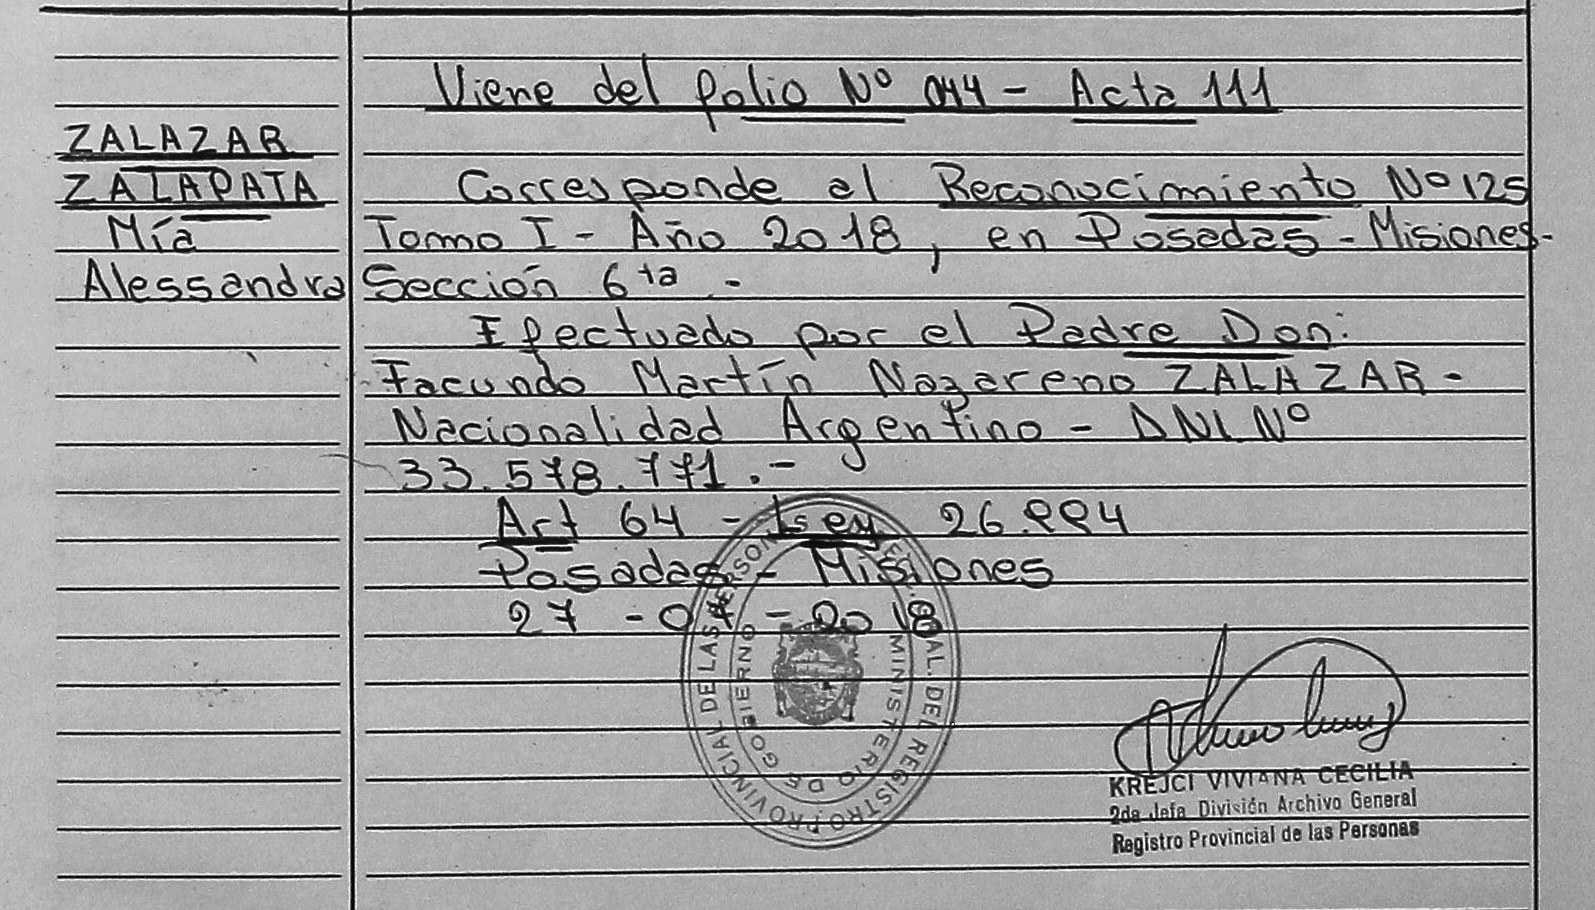 Viene del folio Nº 044 - Acta 111
ZALAZAR
ZALAPATA
Mía
Alessandra
Corresponde al Reconocimiento Nº 125
Tomo I - Año 2018, en Posadas - Misiones-
Sección 6ta.-
Efectuado por el Padre Don:
Facundo Martín Nazareno ZALAZAR -
Nacionalidad Argentino - DNI. Nº
33.578.771.-
Art 64 - Ley 26.994
Posadas - Misiones
27 - 07 - 2018
REGISTRO PROVINCIAL DE LAS PERSONAS
MINISTERIO DE GOBIERNO
KREJCI VIVIANA CECILIA
2da Jefa División Archivo General
Registro Provincial de las Personas